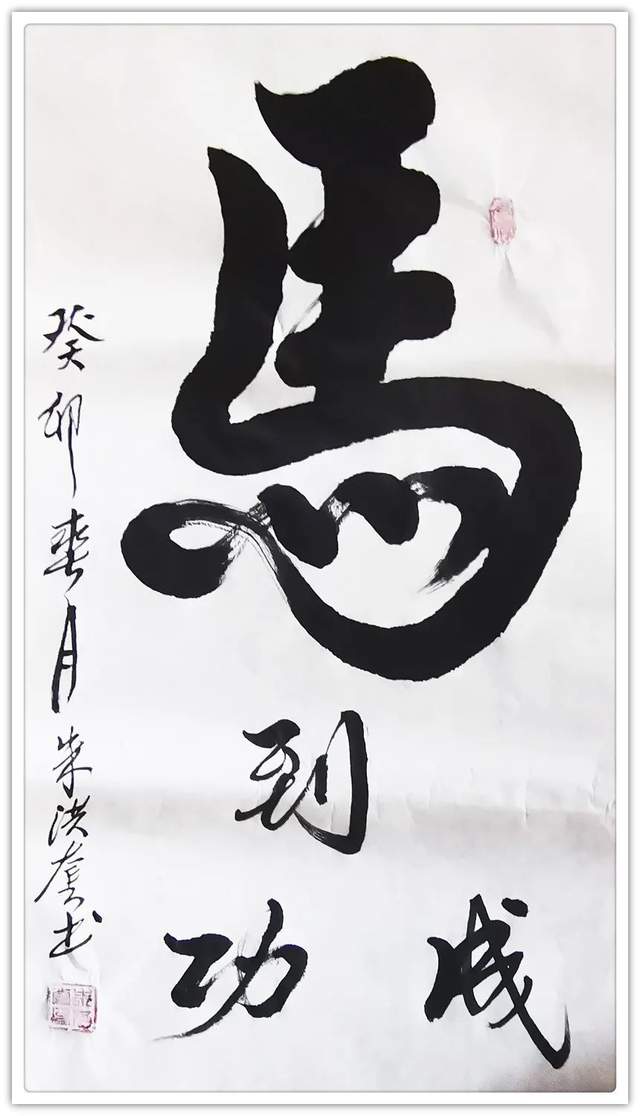 馬
到
成功
癸卯春月朱洪奎书